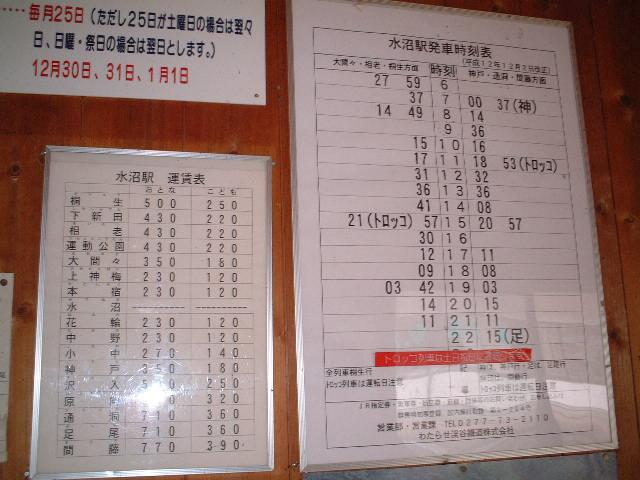 ……毎月25日(ただし25日が土曜日の場合は翌々
日、日曜・祭日の場合は翌日とします。)
12月30日、31日、1月1日
水沼駅 運賃表
おとな こども
桐生 500 250
下新田 430 220
相老 430 220
運動公園 430 220
大間々 350 180
上神梅 230 120
本宿 230 120
水沼
花輪 230 120
中野 230 120
小中 270 140
神戸 350 180
沢入 250
原向 320
通洞 710 360
足尾 710 360
間藤 770 390
水沼駅発車時刻表
(平成12年12月2日改正)
大間々・相老・桐生方面 時刻 神戸・通洞・間藤方面
27 59 6
37 7 00 37(神)
14 49 8 14
9 36
15 10 16
17 11 18 53(トロッコ)
31 12 32
36 13 36
41 14 08
21(トロッコ) 57 15 20 57
30 16
12 17 11
09 18 08
03 42 19 03
14 20 15
11 21 11
22 15(足)
トロッコ列車は土日祝日に
全列車桐生行
トロッコ列車は運転日注意
トロッコ列車は運転日注意
営業部・営業課 TEL0277-73-2110
わたらせ渓谷鐵道株式会社